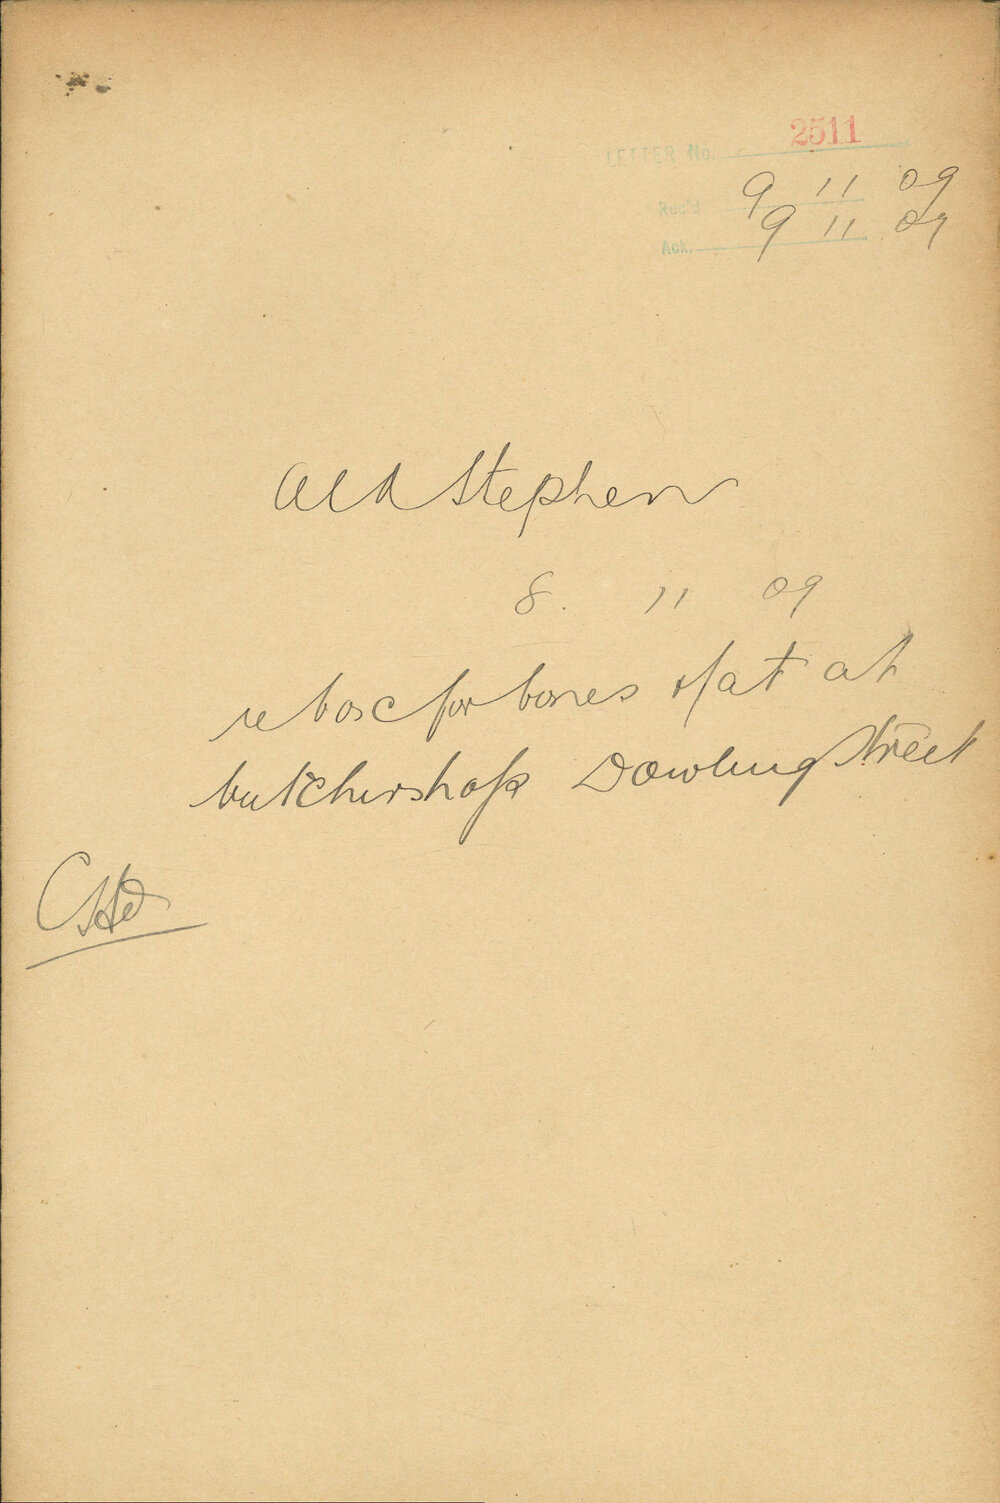 LETTER No. 2511
Rec'd 9 11 09
Ack. 9 11 09
Ald Stephen
8. 11 09
re box for bones & fat at
butchers shop Dowling Street